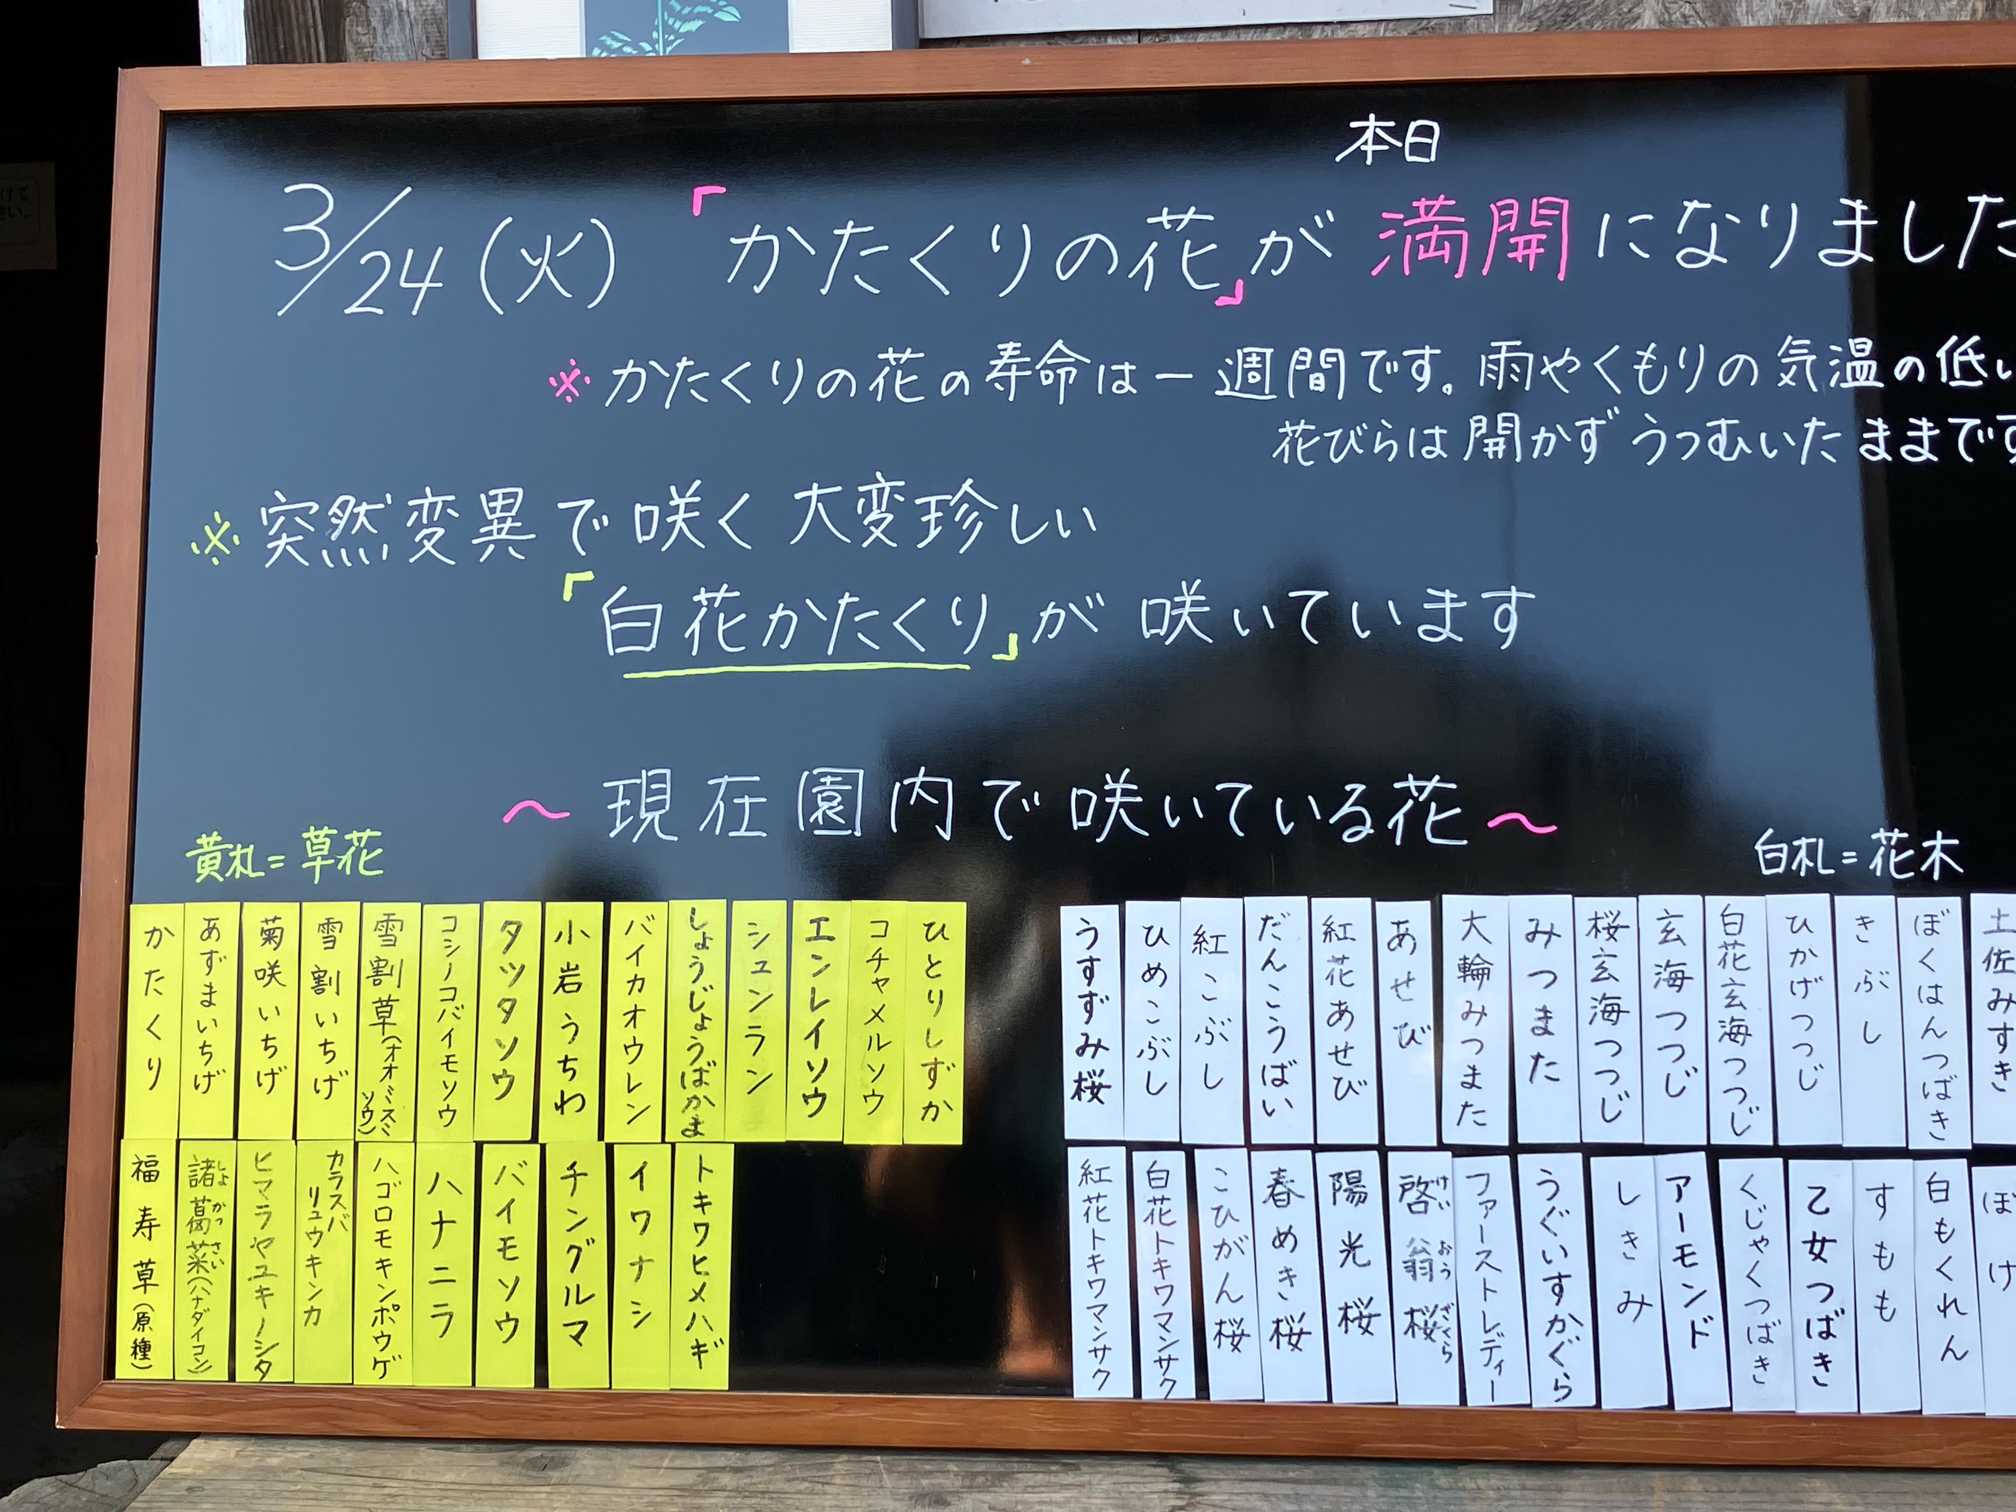 本日
3/24(火)「かたくりの花」が満開になりました
※かたくりの花の寿命は一週間です。雨やくもりの気温の低い
花びらは開かずうつむいたままです
※突然変異で咲く大変珍しい
「白花かたくり」が咲いています
〜現在園内で咲いている花〜
黄札=草花
かたくり
あずまいちげ
菊咲いちげ
雪割いちげ
雪割草(オオミスミソウ)
コシノコバイモソウ
タツタソウ
小岩うちわ
バイカオウレン
しょうじょうばかま
シュンラン
エンレイソウ
コチャメルソウ
ひとりしずか
福寿草(原種)
諸葛菜(ハナダイコン)
しょかっさい
ヒマラヤユキノシタ
カラスバリュウキンカ
ハゴロモキンポウゲ
ハナニラ
バイモソウ
チングルマ
イワナシ
トキワヒメハギ
白札=花木
うすずみ桜
ひめこぶし
紅こぶし
だんこうばい
紅花あせび
あせび
大輪みつまた
みつまた
桜玄海つつじ
玄海つつじ
白花玄海つつじ
ひかげつつじ
きぶし
ぼくはんつばき
土佐みずき
紅花トキワマンサク
白花トキワマンサク
こひがん桜
春めき桜
陽光桜
啓翁桜
けいおうざくら
ファーストレディー
うぐいすかぐら
しきみ
アーモンド
くじゃくつばき
乙女つばき
すもも
白もくれん
ぼけ